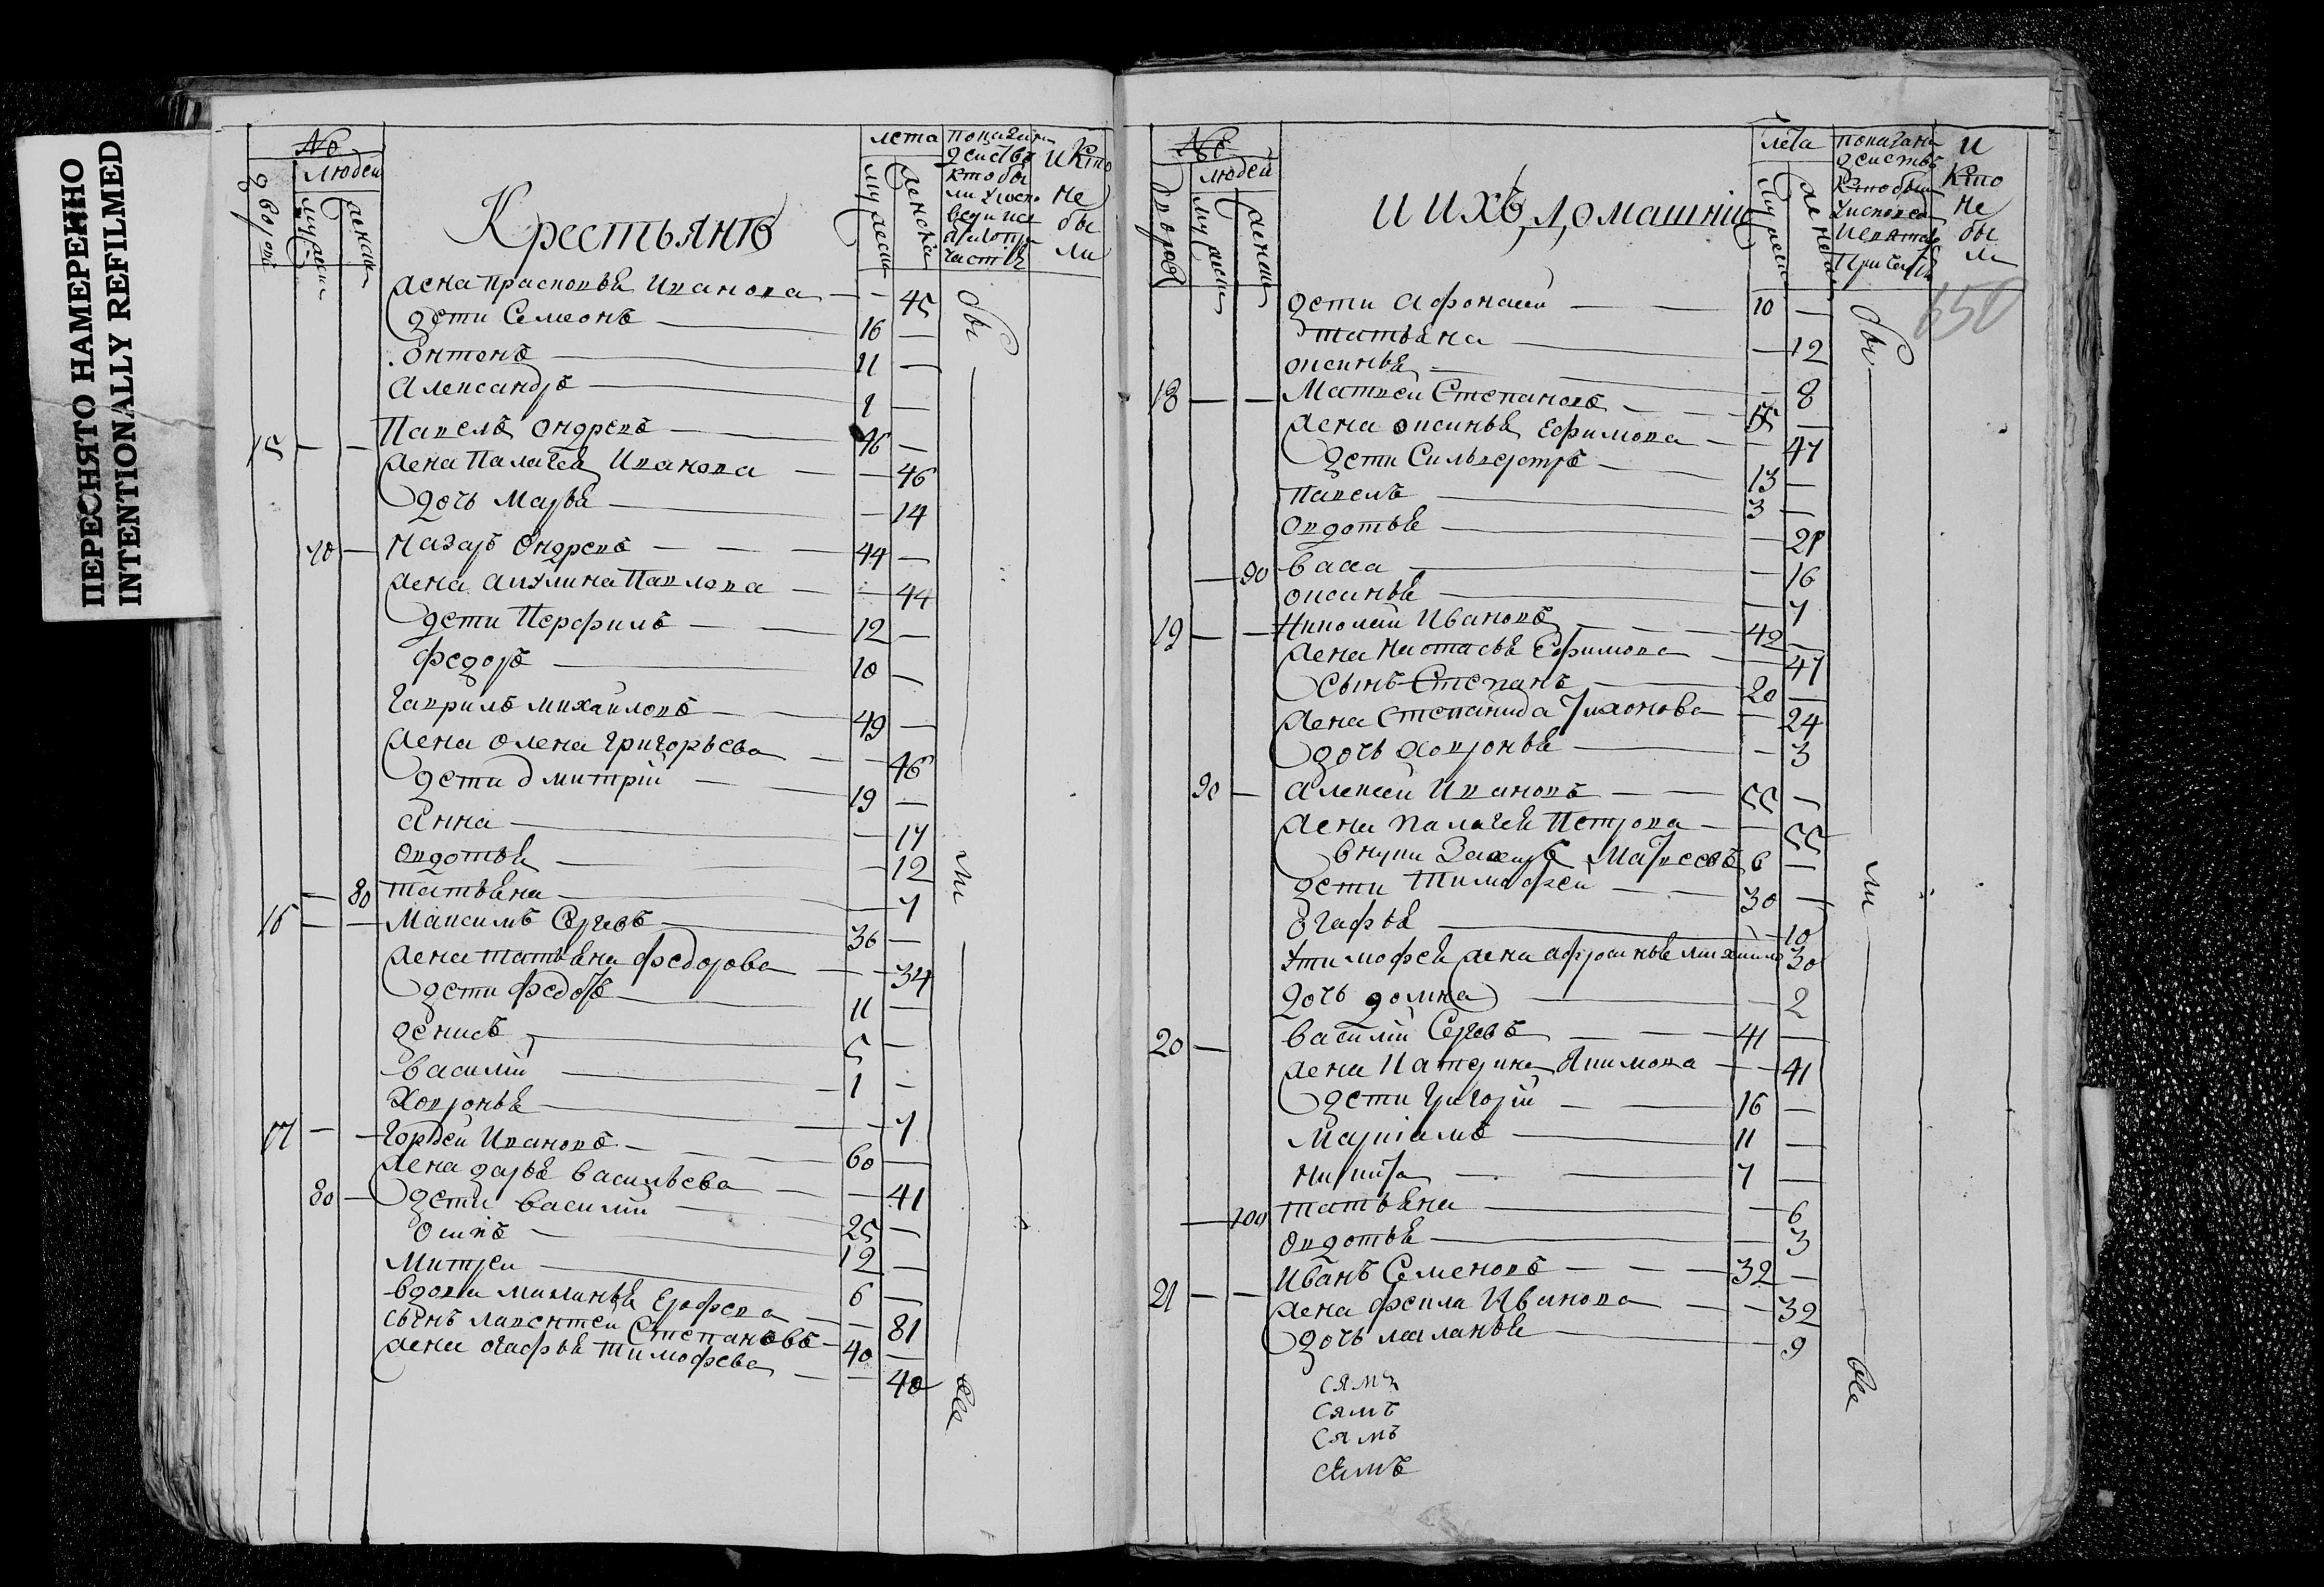 ПЕРЕСНЯТО НАМЕРЕННО
INTENTIONALLY REFILMED
№
дворовъ
людей
мужеск
женск
Крестьяне
лета
мужеска
женска
показани
действо
кто бы
ли у испо
веди и с
причастия
и кто
не
бы
ли
жена Прасковья Иванова — 45
дети Семионъ — 16
Онтонъ — 11
Александръ — 1
15 Павелъ Ондревъ — 46
жена Палагея Иванова — 46
дочь Марья — 14
70 Назаръ Ондревъ — 44
жена Акулина Павлова — 44
дети Перфилъ — 12
Федоръ — 10
Гаврилъ Михайловъ — 49
жена Олена Григорьева — 46
дети Дмитрий — 19
Анна — 17
Овдотья — 12
80 Татьяна — 7
16 Максимъ Сергевъ — 36
жена Татьяна Федорова — 34
дети Федотъ — 11
Денисъ — 5
Василий — 1
Ховронья — 7
17 Гордей Ивановъ — 60
жена Дарья Васильева — 41
80 дети Василий — 25
Осипъ — 12
Митрей — 6
вдова Миланья Ерофева — 81
сынъ Лаврентей Степановъ — 40
жена Огафья Тимофева — 40
бы
ли
все
№
дворов
людей
мужеск
женск
и ихъ домашнии
лета
мужеска
женска
показани
действо
кто был
у исповеди
и
кто
не
бы
ли
650
дети Афонасей — 10
Татьяна — 12
Оксинья — 8
18 Матвей Степановъ
жена Оксинья Ефимова — 47
дети Сильвестръ — 13
Павелъ — 3
Овдотья — 21
90 Васа — 16
Оксинья — 7
19 Николай Ивановъ — 42
жена Настасья Ефимова — 47
сынъ Степанъ — 20
жена Степанида Тихонова — 24
дочь Ховронья — 3
90 Алексей Ивановъ — 55
жена Палагея Петрова — 55
внуки Захаръ Матвеевъ 6
дети Тимофей — 30
Огафья — 10
У Тимофея жена Афросинья Михайлов 30
дочь Домна — 2
20 Василий Сергевъ — 41
жена Катерина Якимова — 41
дети Григорий — 16
Маркиалъ — 11
Никита — 7
100 Татьяна — 6
Овдотья — 3
21 Иванъ Семеновъ — 32
жена Фекла Иванова — 32
дочь Маланья — 9
сямъ
сямъ
сямъ
сямъ
бы
ли
все